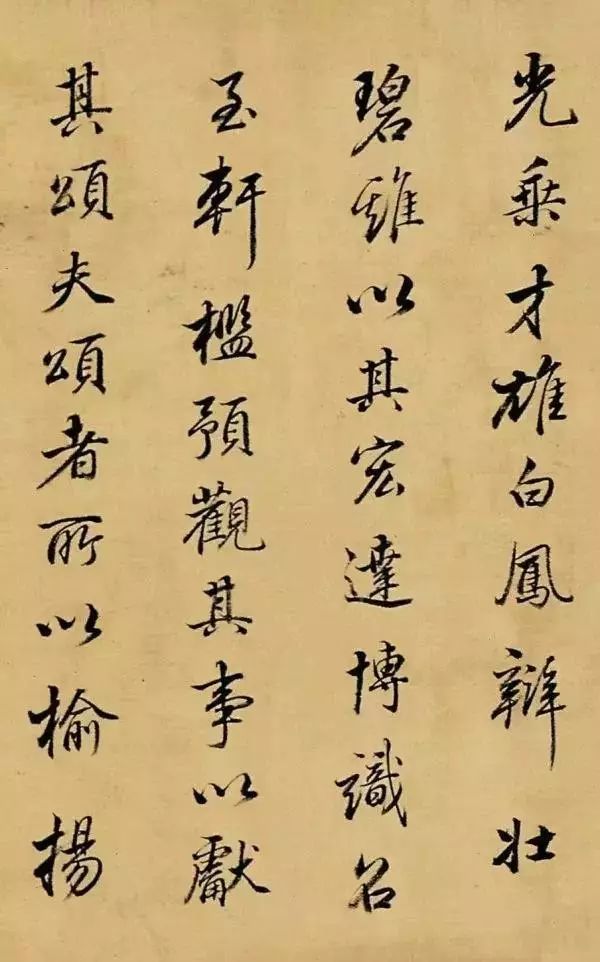 光乘才雄白鳳辯壯
碧雞以其宏達博識召
至軒檻預觀其事以獻
其頌夫頌者所以榆揚